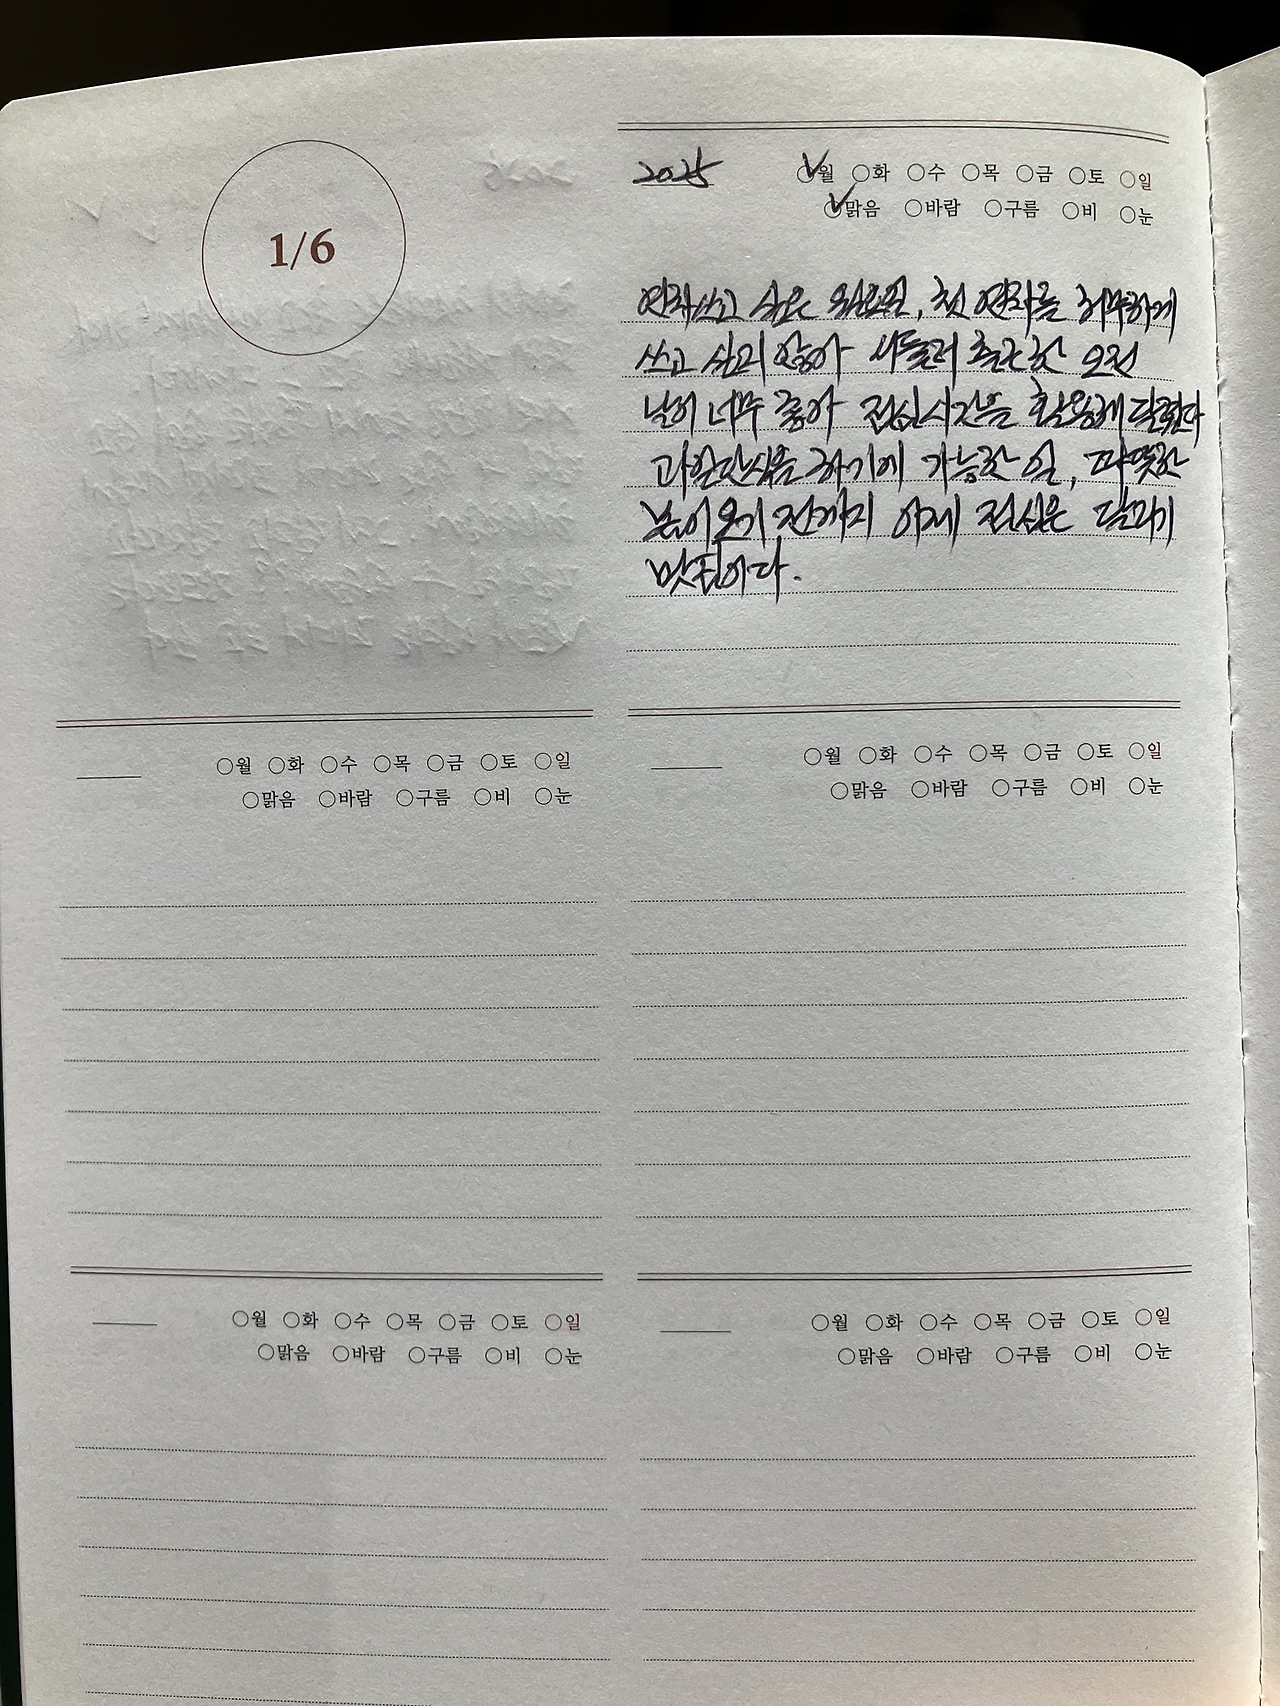 1/6
2025 월 화 수 목 금 토 일
맑음 바람 구름 비 눈
연차쓰고 싶은 월요일, 첫 연차를 허무하게
쓰고 싶지 않아 서둘러 출근한 오전
날이 너무 좋아 점심시간을 활용해 달렸다
과일단식을 하기에 가능한 일, 따뜻한
봄이 오기 전까지 이제 점심은 달리기
맛집이다.
월 화 수 목 금 토 일
맑음 바람 구름 비 눈
월 화 수 목 금 토 일
맑음 바람 구름 비 눈
월 화 수 목 금 토 일
맑음 바람 구름 비 눈
월 화 수 목 금 토 일
맑음 바람 구름 비 눈